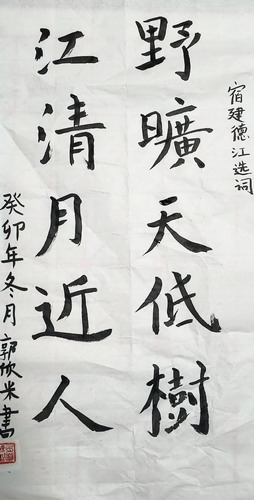 宿建德江选词
野曠天低樹
江清月近人
癸卯年冬月郭欣米書